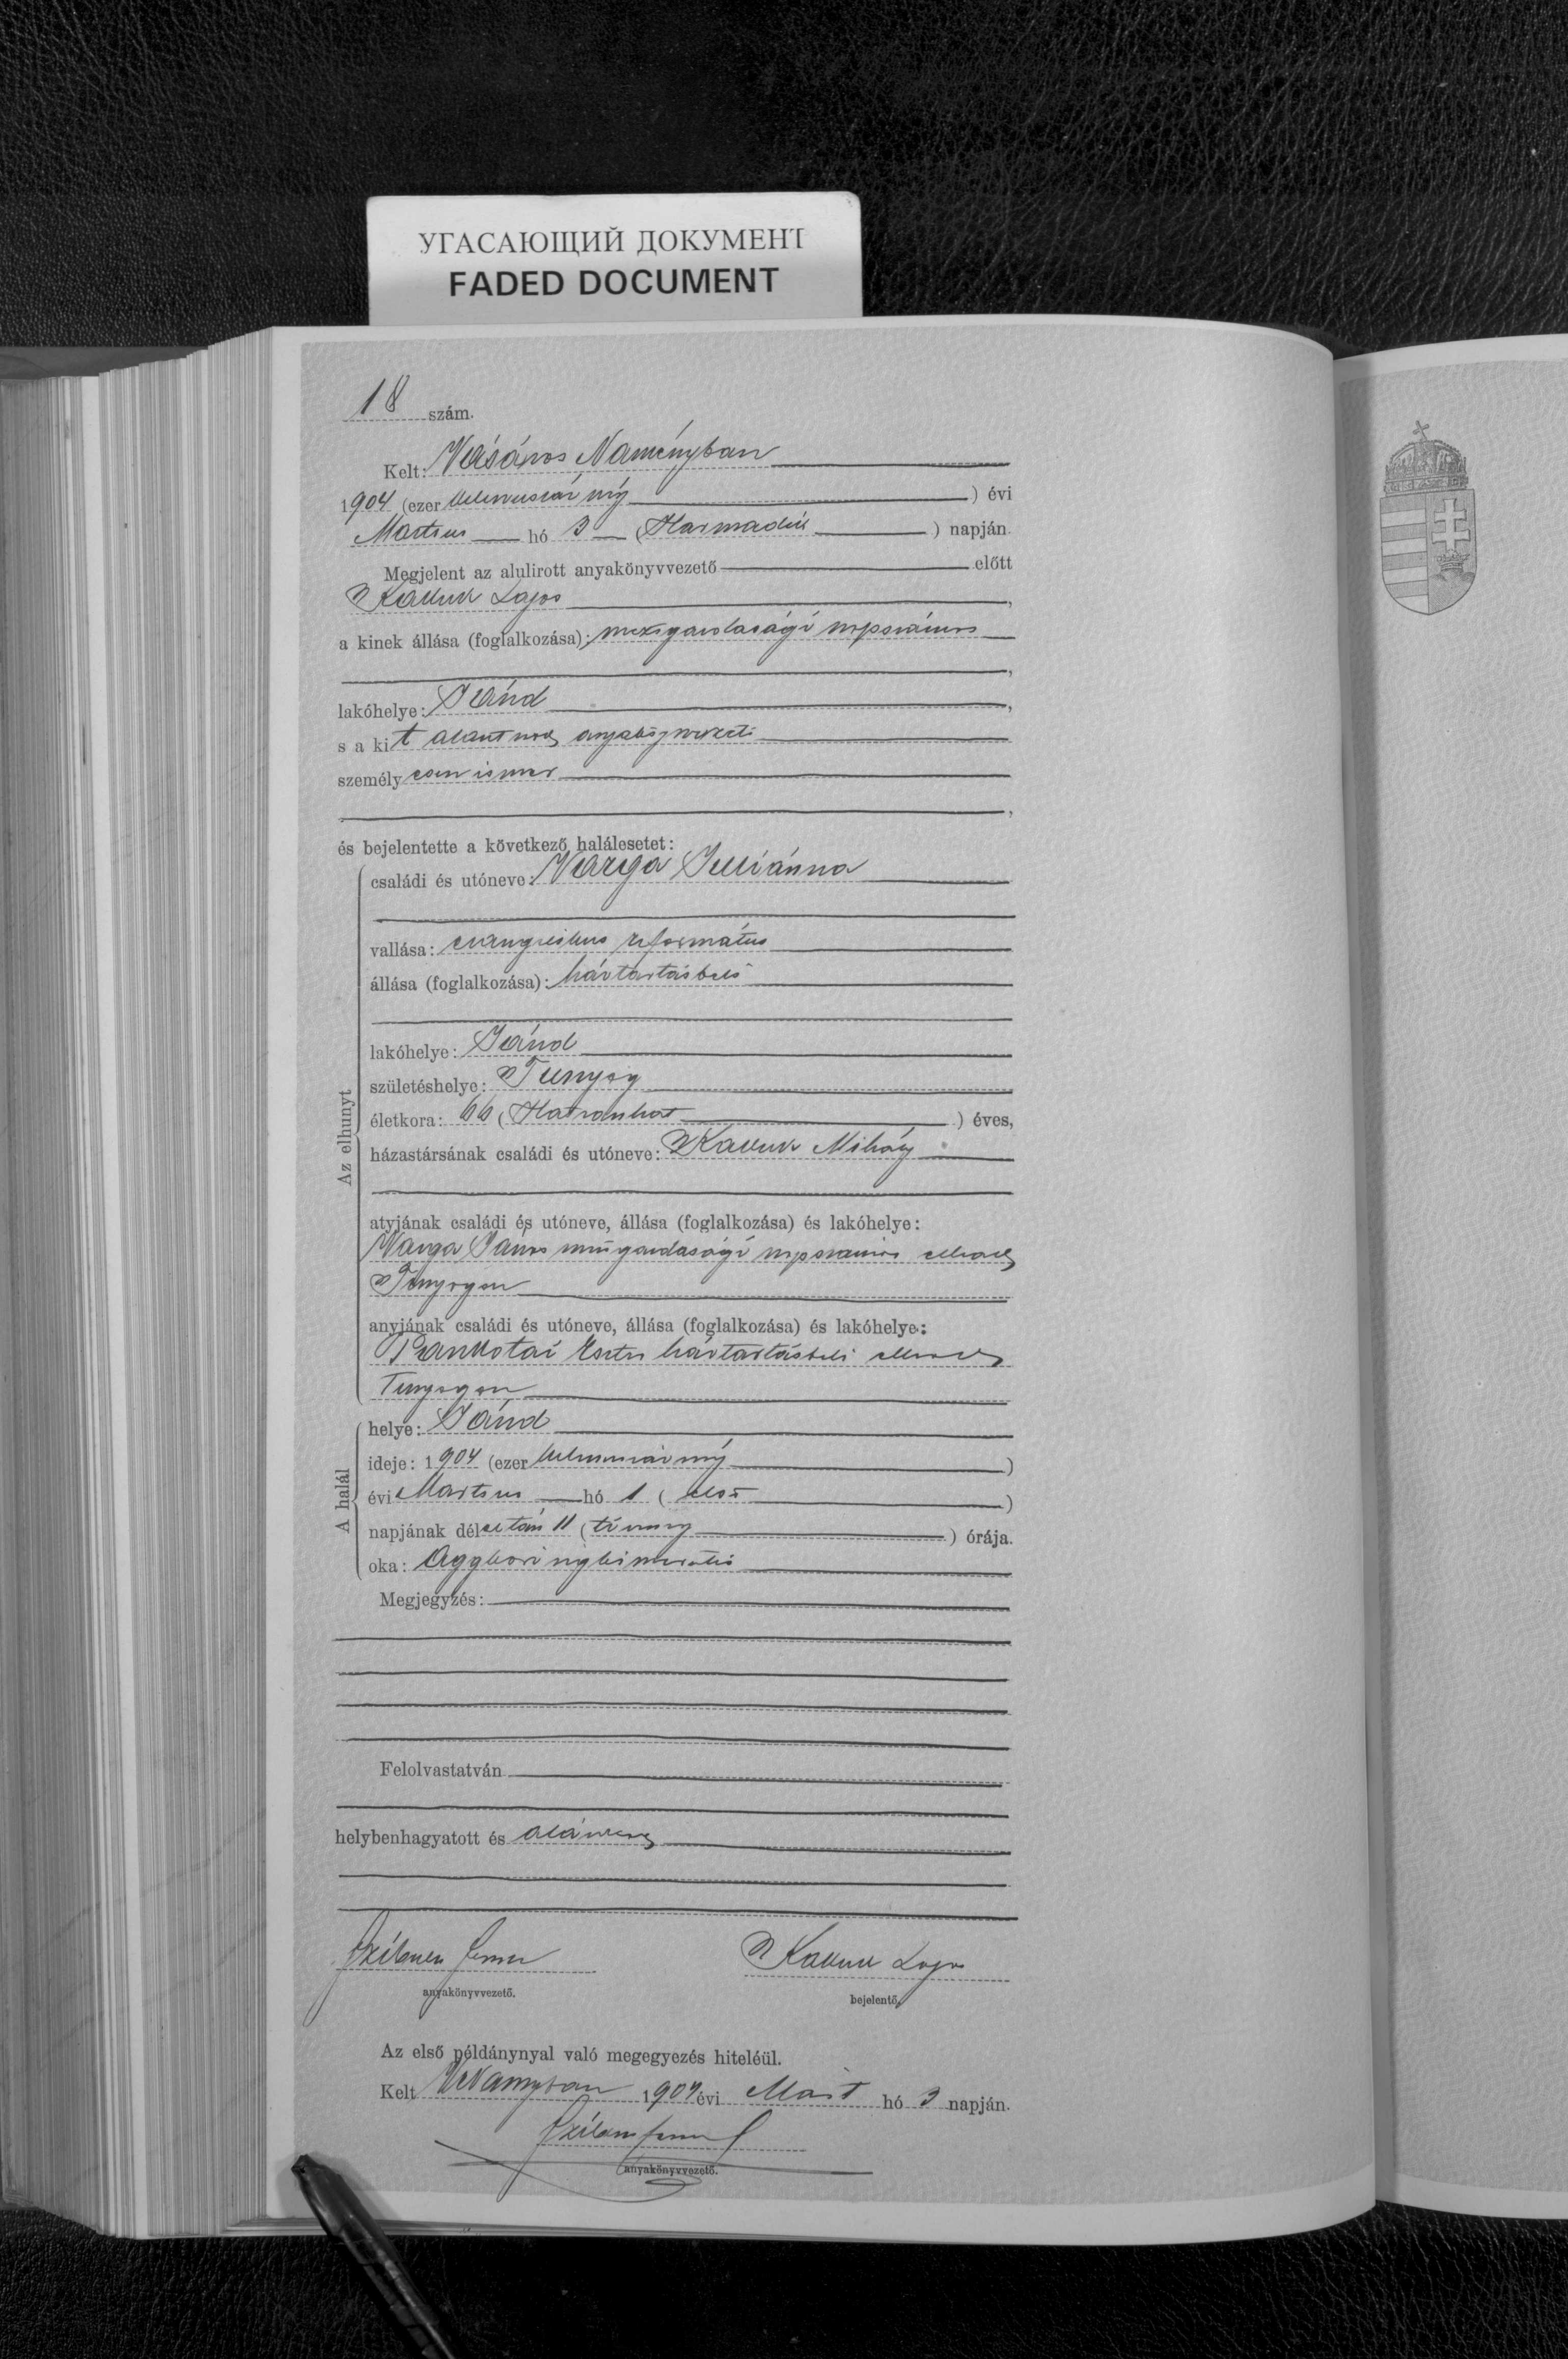 УГАСАЮЩИЙ ДОКУМЕНТ
FADED DOCUMENT
18 szám.
Kelt: Vásáros Naményban
1904 (ezer kilenczszáz négy) évi
Martius hó 3 (Harmadik) napján.
Megjelent az alulirott anyakönyvvezető előtt
Kakuk Lajos,
a kinek állása (foglalkozása): mezőgazdasági napszámos
,
lakóhelye: Jánd,
s a kit alantirott anyakönyvvezető
személyesen ismer
,
és bejelentette a következő halálesetet:
Az elhunyt
családi és utóneve: Varga Juliánna
vallása: evangelikus református
állása (foglalkozása): háztartásbeli
lakóhelye: Jánd
születéshelye: Tunyog
életkora: 66 (Hatvanhat) éves,
házastársának családi és utóneve: Kakuk Mihály
atyjának családi és utóneve, állása (foglalkozása) és lakóhelye:
Varga János mezőgazdasági napszámos elhalt
Tunyogon
anyjának családi és utóneve, állása (foglalkozása) és lakóhelye:
Eszter háztartásbeli elhalt
Tunyogon
A halál
helye: Jánd
ideje: 1904 (ezer kilenczszáz négy)
évi Martius hó 1 (első)
napjának délelőtti 11 (tizenegy) órája.
oka: Aggkori végkimerülés
Megjegyzés:
Felolvastatván
helybenhagyatott és aláiratott
anyakönyvvezető.
Kakuk Lajos
bejelentő.
Az első példánynyal való megegyezés hiteléül.
Kelt VNaményban 1904 évi Márt hó 3 napján.
anyakönyvvezető.